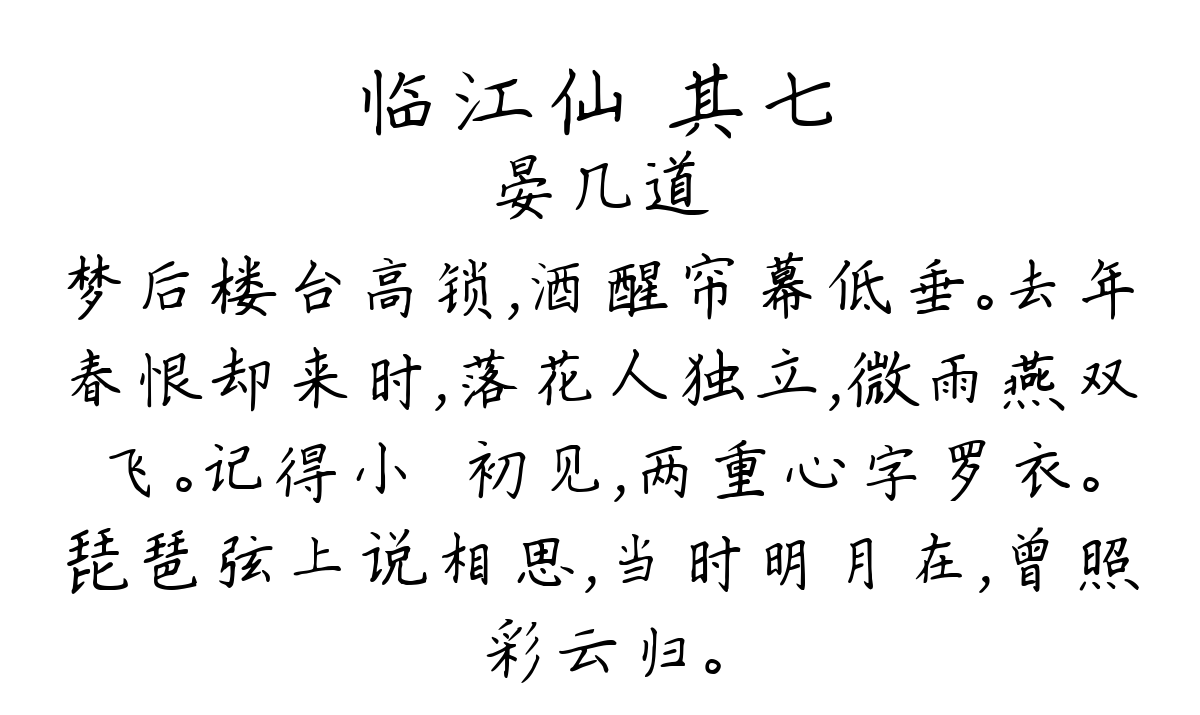 临江仙 其七
晏几道
梦后楼台高锁,酒醒帘幕低垂。去年
春恨却来时,落花人独立,微雨燕双
飞。记得小 初见,两重心字罗衣。
琵琶弦上说相思,当时明月在,曾照
彩云归。